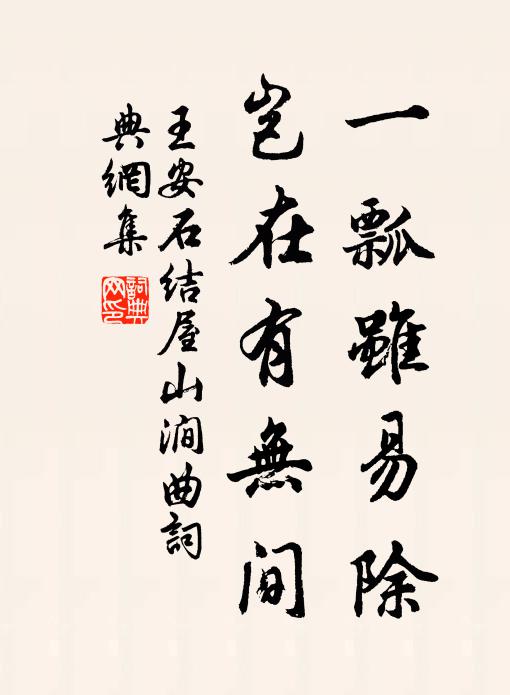 一瓢雖易除
豈在有無间
王安石结屋山涧曲詞
典網集
詞典
网印